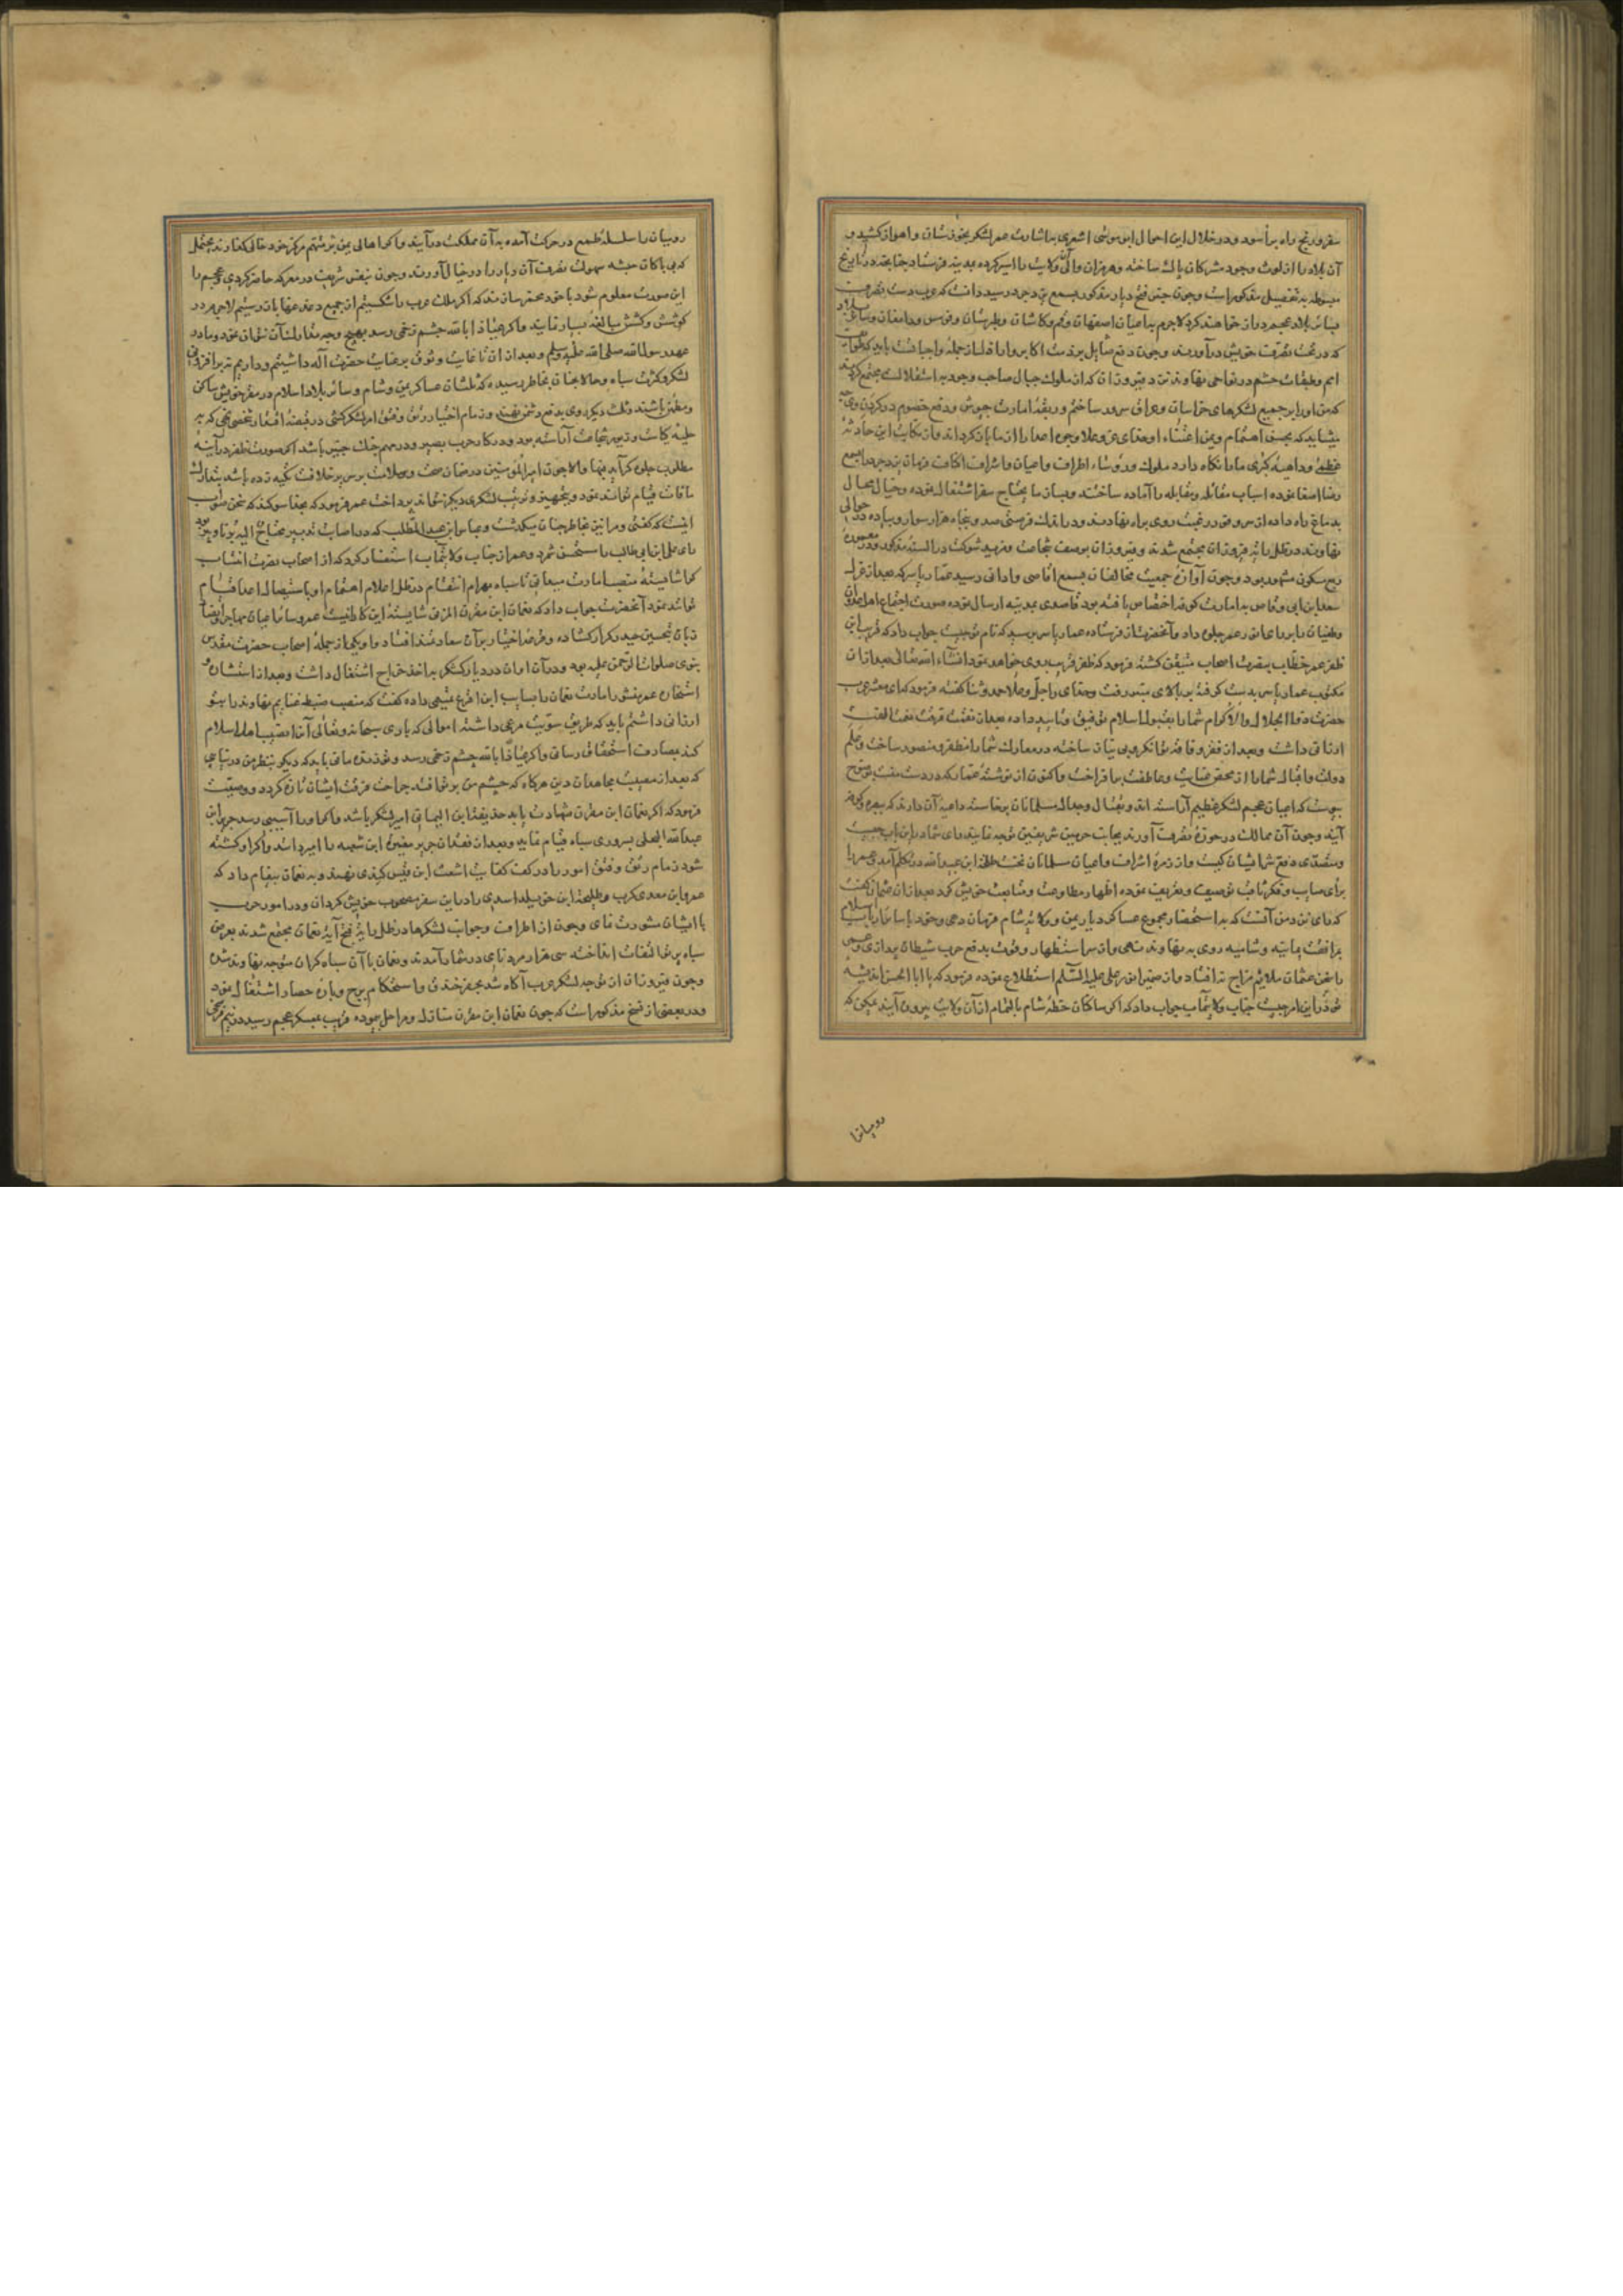 سفر و رنج راه برآسود و در خلال این احوال ابو موسی اشعری به اشارت عمر لشکر بخوزستان و اهواز کشید و
آن بلاد را از لوث وجود مشرکان پاک ساخته و هرمزان والی ولایت را اسیر کرده بمدینه فرستاد چنانچه در تواریخ
مبسوطه به تفصیل مذکور است و چون خبر فتح دیار مذکور بسمع یزدجرد رسید دانست که عرب دست تصرف
بسائر بلاد عجم دراز خواهند کرد لاجرم به اعیان اصفهان و قم و کاشان و طبرستان و قومس و دامغان و سائر بلاد
که در تحت تصرف خویش درآورند و چون دفع صایل بر ذمت اکابر و اراذل از جمله واجبات است باید که طوایف
امم و طبقات حشم در نواحی نهاوند نزد فیروزان که از ملوک جبال صاحب وجود به استقلالست مجتمع گردند
که من او را بر جمیع لشکرهای خراسان و عراق سرور ساختم و ربقه امارت جیوش و دفع خصوم در گردن وی
میشاید که بحسن اهتمام و یمن اعتناء او خدای عز و علا وجوه اعدا را از ما بازگرداند و از نکایت این حادثه
عظمی و داهیه کبری ما را نگاه دارد ملوک و رؤساء اطراف و اعیان و اشراف اکناف فرمان یزدجرد را بسمع
رضا اصغا نموده اسباب مقاتله و مقابله را آماده ساختند و بساز ما یحتاج سفر اشتغال نموده و خیال محال
بدماغ راه داده از سر وفور رغبت روی براه نهادند و در اندک فرصتی صد و پنجاه هزار سوار و پیاده در حوالی
نهاوند در ظل رایت فیروزان مجتمع شدند و فیروزان بوصف شجاعت و مزید شوکت در السنه مذکور و در معموره
ربع مسکون مشهور بود و چون آوازه جمعیت مخالفان بسمع اقاصی و ادانی رسید عمار یاسر که بعد از عزل
سعد ابن ابی وقاص به امارت کوفه اختصاص یافته بود قاصدی بمدینه ارسال نموده صورت اجتماع اهل عدوان
و طغیان را بر رای انور عمر جلوه داد و آنحضرت از فرستاده عمار یاسر پرسید که نام تو چیست جواب داد که قریب ابن
ظفر عمر خطاب بنصرت اصحاب متیقن گشته فرمود که ظفر قریب روی خواهد نمود انشاء الله تعالی بعد از آن
مکتوب عمار یاسر بدست گرفته بر بالای منبر رفت و خدای را جل و علا حمد و ثنا گفته فرمود که ای معشر عرب
حضرت ذو الجلال و الاکرام شما را بقبول اسلام توفیق و تأیید داده بعد از تفرقت نعمت الفت
ارزانی داشت و بعد از فقر و فاقه توانگر و بی نیاز ساخته در معارک شما را مظفر و منصور ساخت و علم
دولت و اقبال شما را از محض عنایت و عاطفت برافراخت و اکنون از نوشته عمار که در دست منست بوضوح
پیوست که اعیان عجم لشکر عظیم آراسته اند و بقتال و جدال مسلمانان برخاسته داعیه آن دارند که ببصره و کوفه
آیند و چون آن ممالک در حوزه تصرف آورند بجانب حرمین شریفین توجه نمایند رای شما در این باب چیست
و متصدی دفع شر ایشان کیست و از زمره اشراف و اعیان مسلمانان نخست طلحة ابن عبید الله در تکلم آمد و عمر را
برای صایب و فکر ثاقب توصیف و تعریف نموده اظهار مطاوعت و متابعت خویش کرد بعد از آن عثمان گفت
که رای من آنست که به استحضار مجموع عساکر دیار یمن و ولایت شام فرمان دهی و خود با سائر ارباب اسلام
برافقت یمانیه و شامیه روی به نهاوند نهی و از سر استظهار و قوت بدفع حزب شیطان پردازی و چون
سخن عثمان ملائم مزاج نه افتاد و از ضمیر انور علی علیه السلام استطلاع نموده فرمود که یا ابا الحسن اندیشه
تو در این امر چیست جناب ولایتمآب جواب داد که اگر ساکنان خطه شام بالتمام از آن ولایت بیرون آیند ممکن که
رومیانرا
رومیان را سلسله طمع در حرکت آمده به آن مملکت درآیند و اگر اهالی یمن مرکز خود خالی گذارند محتمل
که بی باکان حبشه سهولت تصرف آن دیار را در خیال آورند و چون بنفس شریف در معرکه حاضر گردی و عجم را
این صورت معلوم شود با خود مقرر سازند که اگر ملک عرب را شکستیم از جمیع دغدغها باز رستیم لاجرم در
کوشش و کشش مبالغه بسیار نمایند و اگر عیاذا بالله چشم زخمی رسد بهیچ وجه تدارک آن نتوان نمود و ما در
عهد رسول الله صلی الله علیه وسلم و بعد از آن تا غایت وثوق بر عنایت حضرت اله داشتیم و داریم نه بر افزونی
لشکر و کثرت سپاه و حالا چنان بخاطر رسیده که ثلثان عساکر یمن و شام و سائر بلاد اسلام در مقر خویش ساکن
و مطمئن باشند و ثلث دیگر روی بدفع دشمن نهند و زمام اختیار رتق و فتق امر لشکرکشی در قبضه اقتدار شخصی نهی که به
حلیه کیاست و زیور شجاعت آراسته بود و در کار حرب بصیر و در مهم جنگ خبیر باشد اگر صورت ظفر در آینه
مطلوب جلوه گر آید فبها و الا چون امیر المؤمنین در ضمان صحت و سلامت بر سریر خلافت تکیه زده باشد بتدارک
مافات قیام تواند نمود و بتجهیز و ترتیب لشکری دیگر تواند پرداخت عمر فرمود که بخدا سوگند که سخن صواب
اینست که گفتی و مرا نیز بخاطر چنان میگذشت و عباس ابن عبد المطلب که در اصابت تدبیر محتاج الیه برنا و پیر بود
رای علی ابن ابی طالب را مستحسن شمرد و عمر از جناب ولایتمآب استفسار کرد که از اصحاب نصرت انتساب
کرا شایسته منصب امارت میدانی تا سپاه بهرام انتقام در ظل اعلام اهتمام او باستیصال اعدا قیام
توانند نمود آنحضرت جواب داد که نعمان ابن مقرن المزنی شایسته این کار است عمر و سائر اعیان مهاجر و انصار
زبان بتحسین حیدر کرار گشاده و قرعه اختیار بر آن سعادتمند افتاد و او یکی از جمله اصحاب حضرت مقدس
نبوی صلوات الرحمن علیه بود و در آن اوان در دیار کسکر به اخذ خراج اشتغال داشت و بعد از استشاره و
استخاره عمر منشور امارت نعمان را بسایب ابن اقرع ثقفی داده گفت که منصب ضبط غنایم نهاوند را بتو
ارزانی داشتم باید که طریق سویت مرعی داشته اموالی که باری سبحانه و تعالی آنرا نصیب اهل اسلام
کند بمصارف استحقاق رسانی و اگر عیاذا بالله چشم زخمی رسد و تو زنده مانی باید که دیگر بنظر من در نیایی
که بعد از مصیبت مجاهدان دین هرگاه که چشم من بر تو افتد جراحت فرقت ایشان تازه گردد و وصیت
فرمود که اگر نعمان ابن مقرن شهادت یابد حذیفة ابن الیمان امیر لشکر باشد و اگر او را آسیبی رسد جریر ابن
عبد الله البجلی بسروری سپاه قیام نماید و بعد از فقدان جریر مغیره ابن شعبه را امیر دانند و اگر او کشته
شود زمام رتق و فتق امور را در کف کفایت اشعث ابن قیس کندی نهند و به نعمان پیغام داد که
عمرو ابن معدی کرب و طلیحه ابن خویلد اسدی را در این سفر مصحوب خویش گردان و در امور حرب
با ایشان مشورت نمای و چون از اطراف و جوانب لشکرها در ظل رایت فتح آیه نعمان مجتمع شدند بعرض
سپاه پرتو التفات انداخته سی هزار مرد نامی در شمار آمدند و نعمان با آن سپاه گران متوجه نهاوند شد
و چون فیروزان از توجه لشکر عرب آگاه شد بحفر خندق و استحکام برج و باره حصار اشتغال نمود
و در بعضی از نسخ مذکور است که چون نعمان ابن مقرن منازل و مراحل پیموده قریب بمعسکر عجم رسید در نیم فرسخی